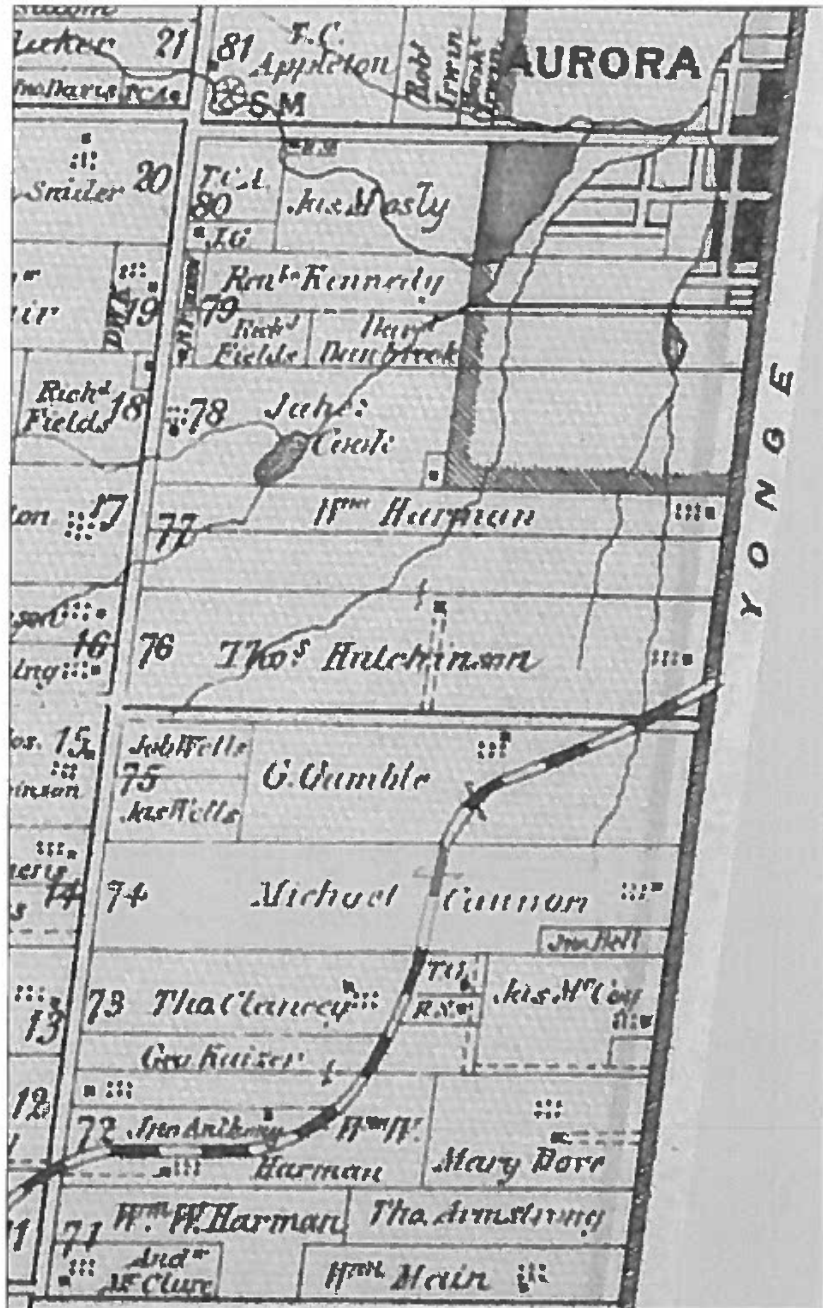 21
81
F.C.
Appleton
Robt
Irwin
Irwin
AURORA
S M
Snider
20
F.C.A.
80
J.G.
Jas Mosly
Kennedy
19
79
Richd
Fields
Richd
Fields
18
78
James
Cook
17
77
Wm Harman
YONGE
16
76
Thos Hutchinson
15
Job Wells
75
Jas Wells
G. Gamble
14
74
Michael Cannon
Jno Bell
13
73
Tho Clancey
Jas McCoy
Geo Kaiser
12
72
Jno Anthony
Wm W.
Harman
Mary Dorr
11
71
Wm W. Harman
Tho Armstrong
Andw
McClure
Wm Main